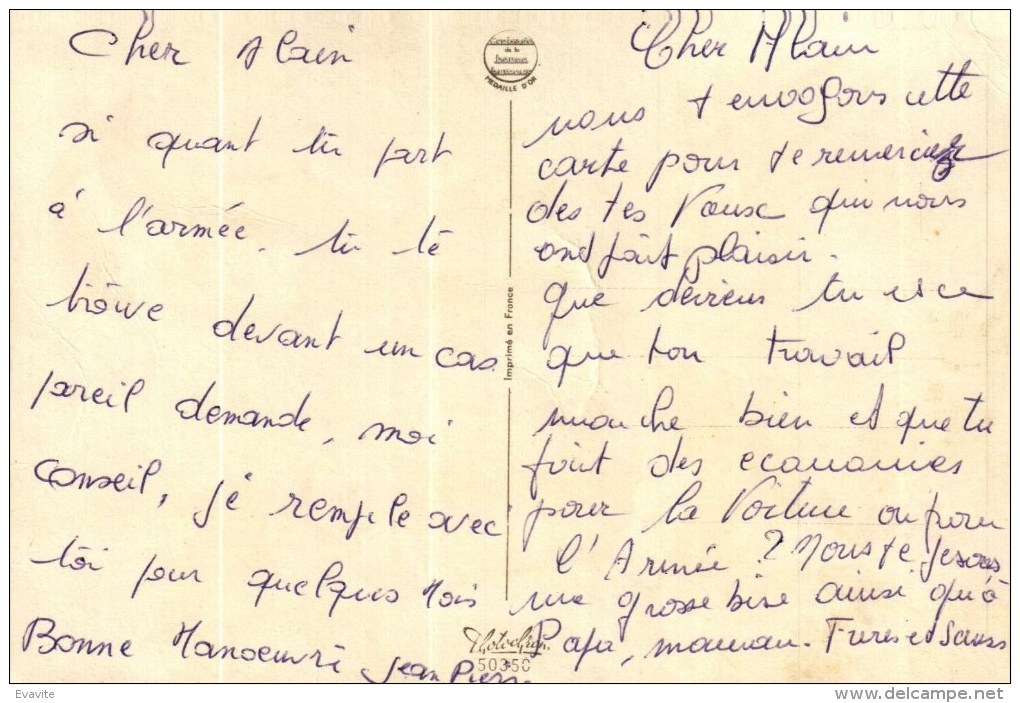 Cher Alain
si quant tu part
à l'armée. tu te
trouve devant un cas
pareil demande, moi
conseil, je remple avec
toi pour quelques Mois
Bonne Manoeuvre Jean Pierre
MEDAILLE D'OR
Imprimé en France
Photochrom
50350
Cher Alain
nous t envoyons cette
carte pour te remercier
des tes Voeux qui nous
ond fait plaisir.
que deviens tu es ce
que ton travail
marche bien et que tu
fait des economies
pour la Voiture ou pour
l'Armée ? Nous te fesons
une grosse bise ainsi qu'à
Papa, maman. Freres et Soeurs
Evavite
delcampe.net